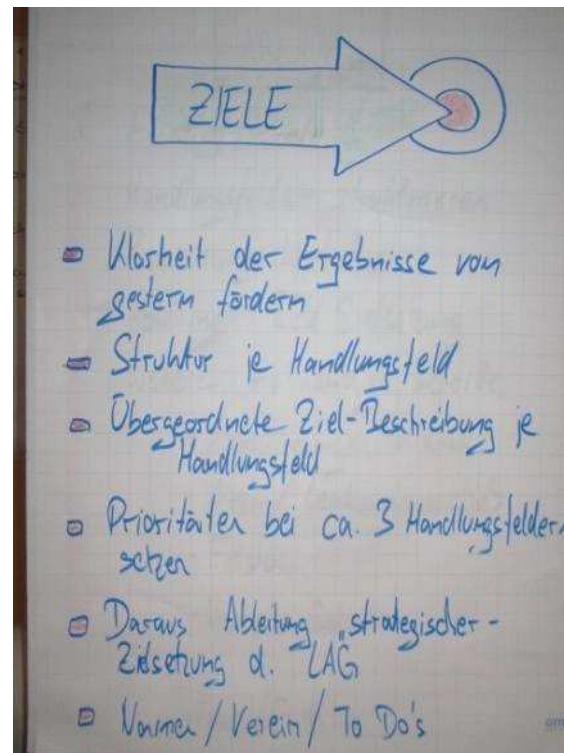 ZIELE
Klarheit der Ergebnisse von
gestern fördern
Struktur je Handlungsfeld
Übergeordnete Ziel-Beschreibung je
Handlungsfeld
Prioritäten bei ca. 3 Handlungsfelder
setzen
Daraus Ableitung "strategischer-
Zielsetzung d. LAG
/ Verein / To Do's